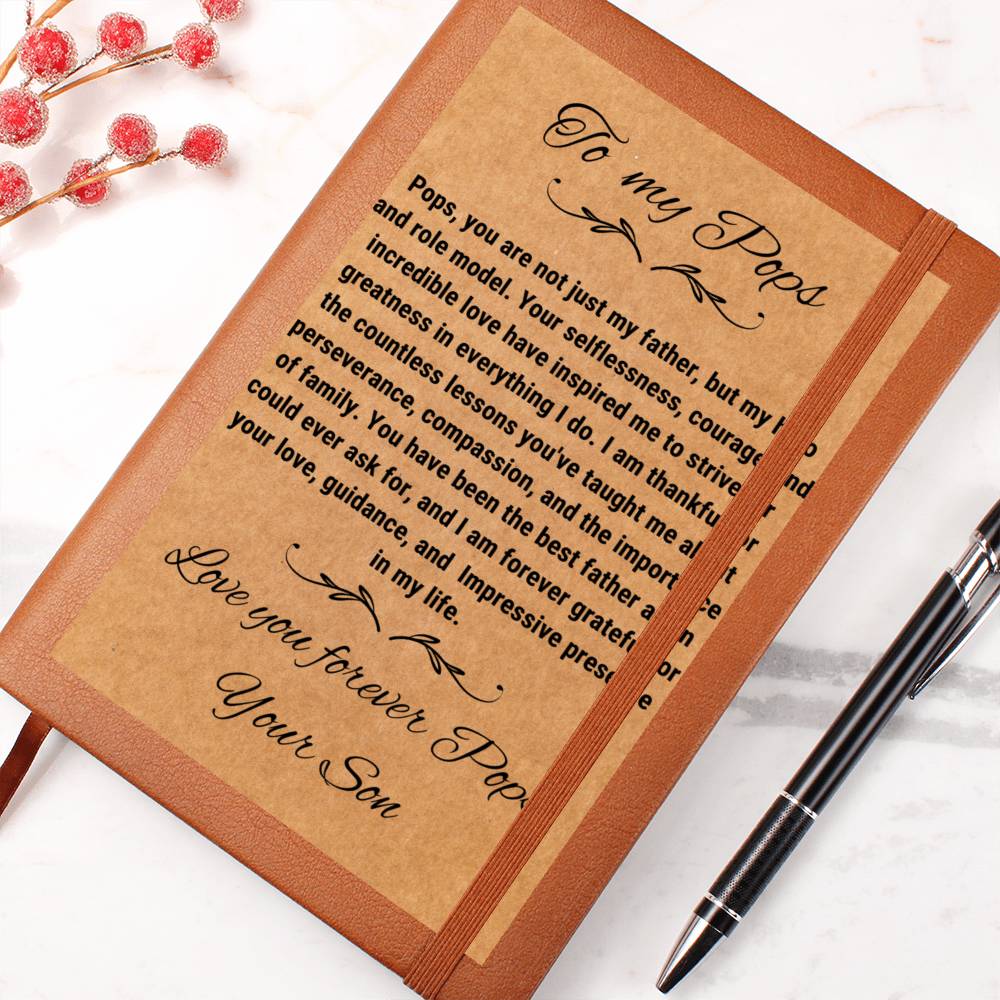 To my Pops
Pops, you are not just my father, but my hero
and role model. Your selflessness, courage, and
incredible love have inspired me to strive for
greatness in everything I do. I am thankful for
the countless lessons you've taught me about
perseverance, compassion, and the importance
of family. You have been the best father a son
could ever ask for, and I am forever grateful for
your love, guidance, and Impressive presence
in my life.
Love you forever Pops
Your Son